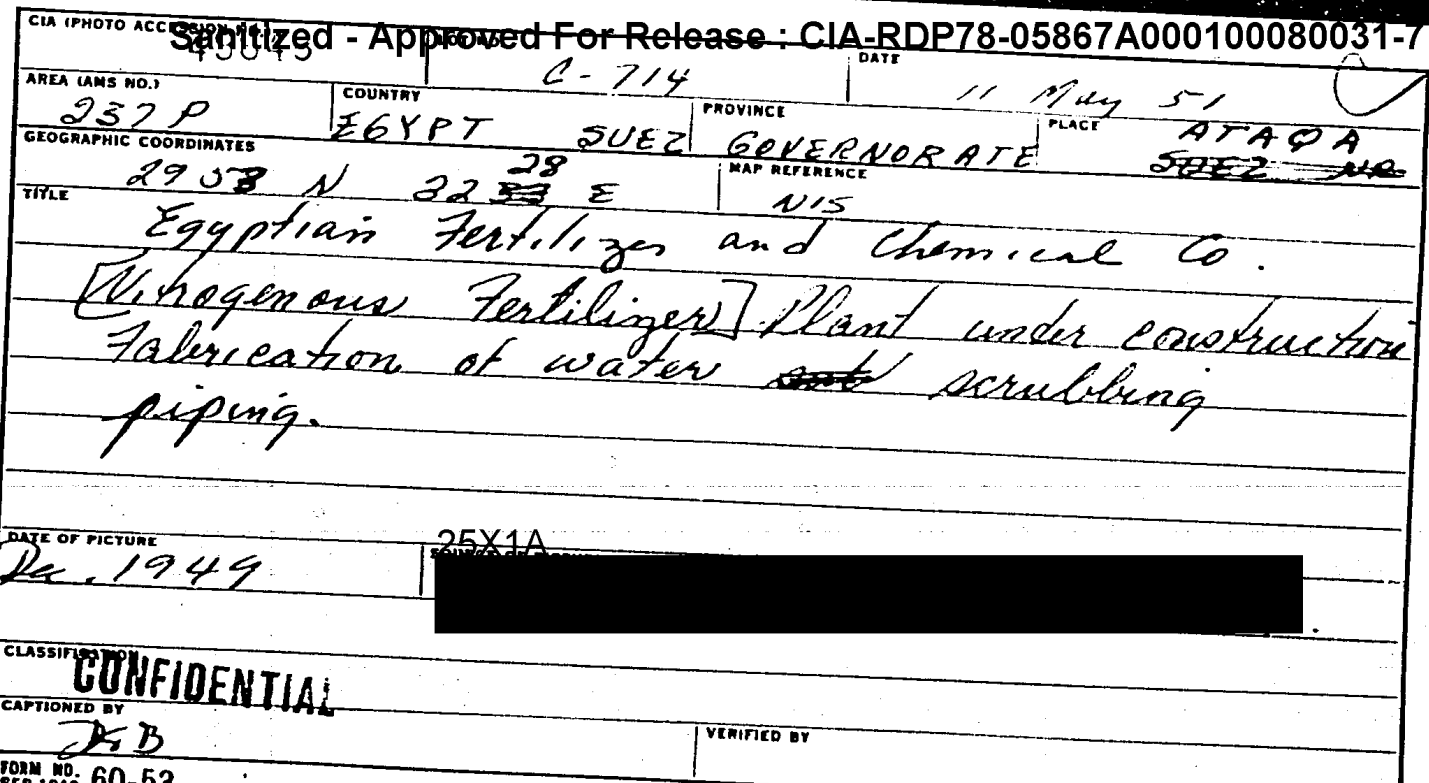 CIA (PHOTO ACCESSION NO.)
Sanitized - Approved For Release : CIA-RDP78-05867A000100080031-7
C-714
DATE
11 May 51
AREA (AMS NO.)
237 P
COUNTRY
EGYPT SUEZ
PROVINCE
GOVERNORATE
PLACE
ATAQA
SUEZ NR
GEOGRAPHIC COORDINATES
28
29 53 N 32 33 E
MAP REFERENCE
NIS
TITLE
Egyptian Fertilizer and Chemical Co.
[Nitrogenous Fertilizer] Plant under construction
Fabrication of water scrubbing
piping.
DATE OF PICTURE
Dec. 1949
25X1A
CLASSIFICATION
CONFIDENTIAL
CAPTIONED BY
VERIFIED BY
FORM NO. 60-53